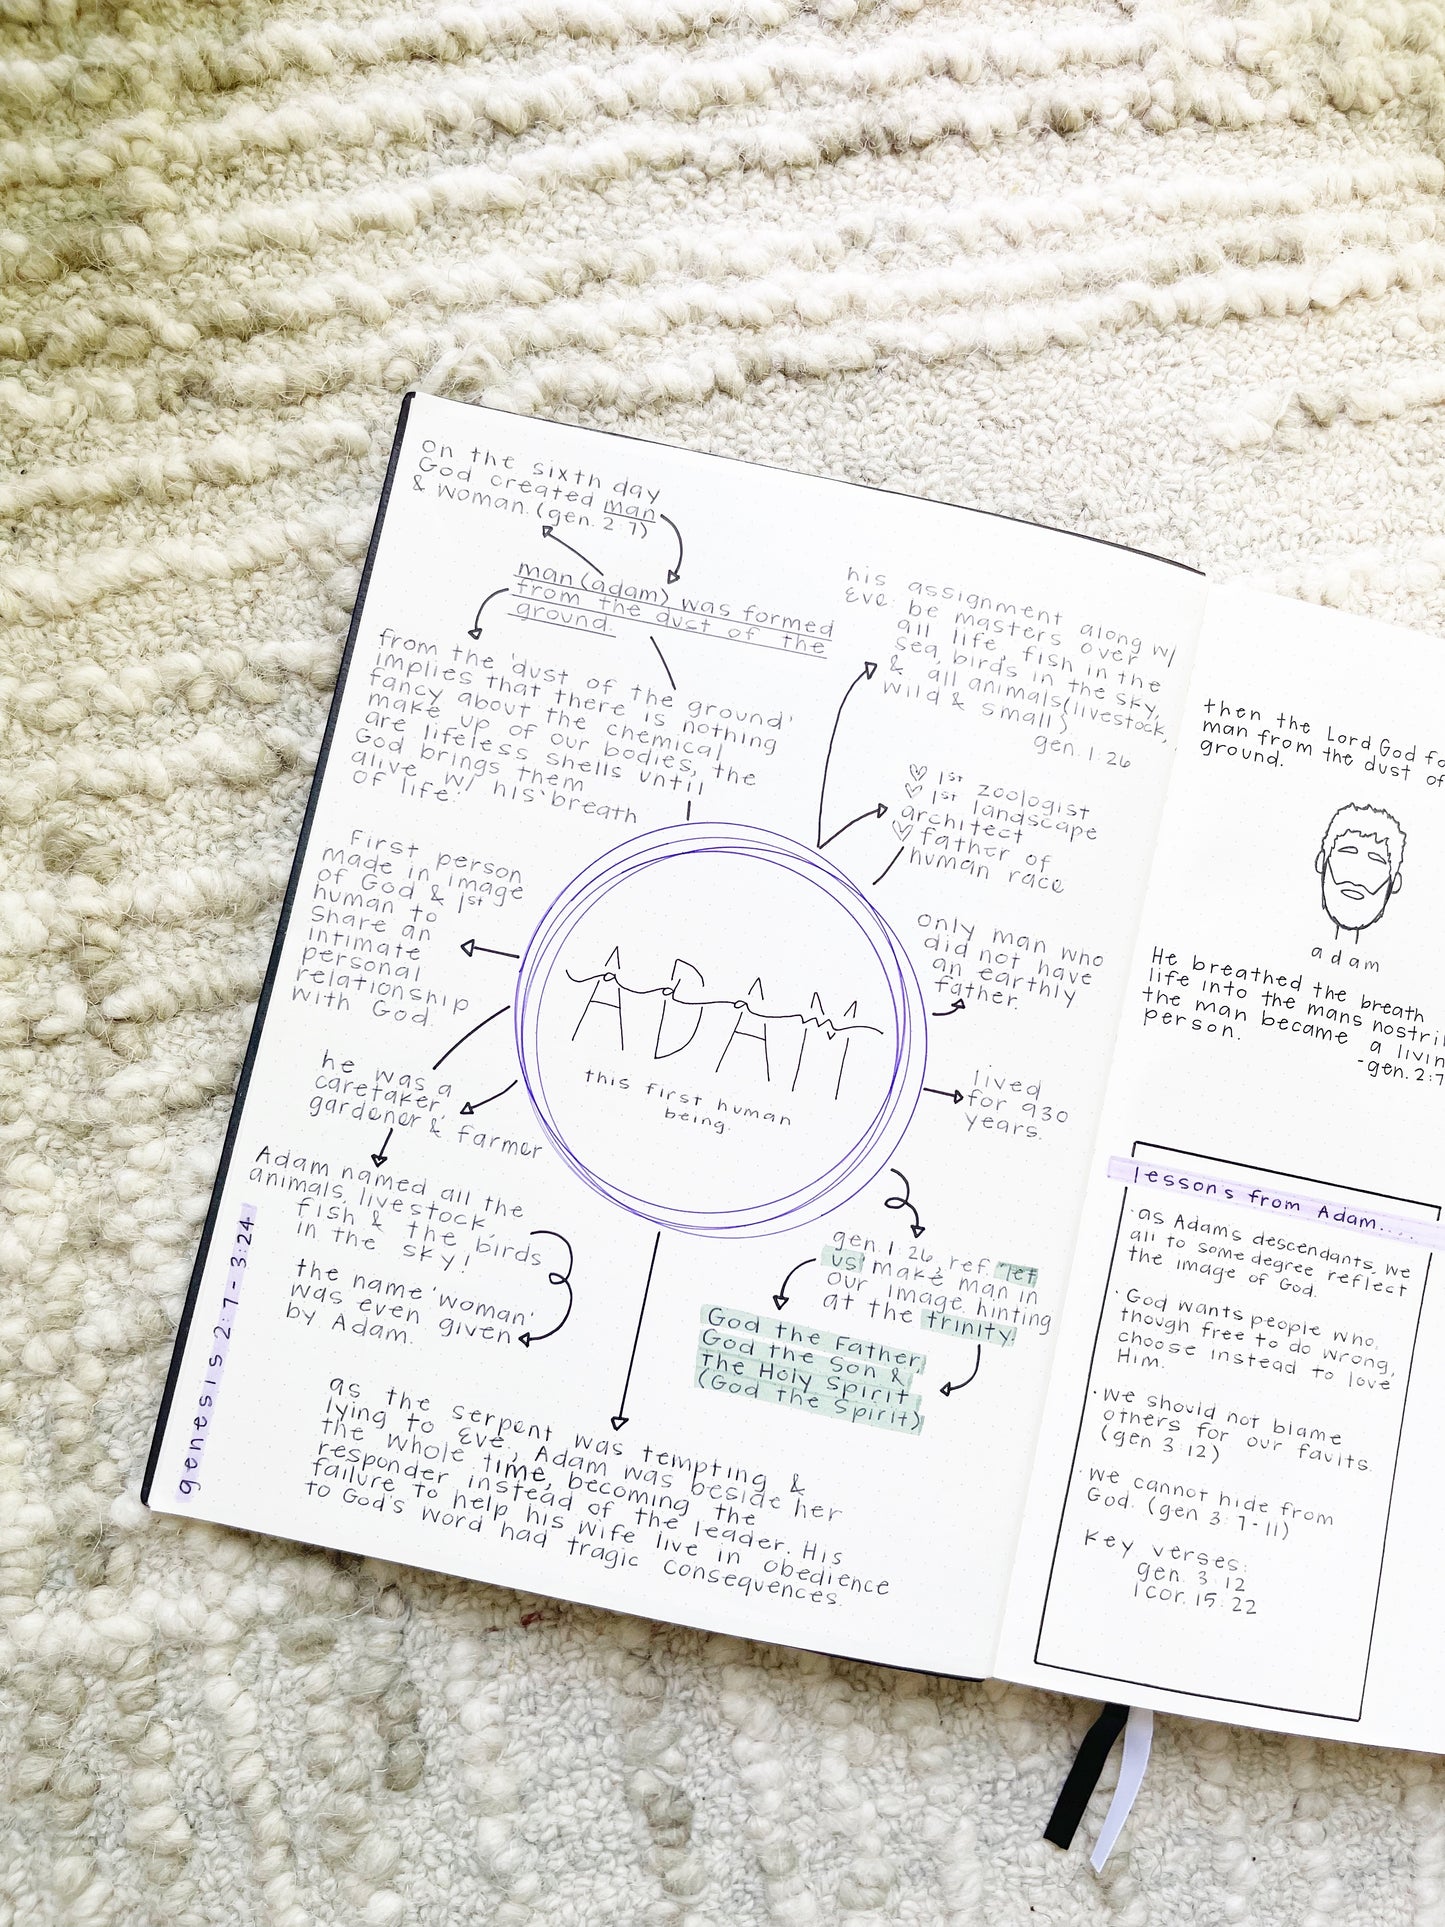 on the sixth day
God created man
& woman. (gen. 2:7)
man (adam) was formed
from the dust of the
ground.
from the 'dust of the ground'
implies that there is nothing
fancy about the chemical
make up of our bodies, the
are lifeless shells until
God brings them
alive w/ his 'breath
of life.'
First person
made in image
of God & 1st
human to
share an
intimate
personal
relationship
with God.
he was a
caretaker,
gardener & farmer
Adam named all the
animals, livestock,
fish & the birds
in the sky!
the name 'woman'
was even given
by Adam.
genesis 2:7 - 3:24
as the serpent was tempting &
lying to Eve, Adam was beside her
the whole time, becoming the
responder instead of the leader. His
failure to help his wife live in obedience
to God's word had tragic consequences.
ADAM
this first human
being.
his assignment along w/
Eve: be masters over
all life, fish in the
sea, birds in the sky,
& all animals (livestock,
wild & small)
gen. 1:26
♡ 1st zoologist
♡ 1st landscape
architect
♡ father of
human race
only man who
did not have
an earthly
father.
lived
for 930
years.
gen. 1:26, ref. 'let
us' make man in
our image, hinting
at the trinity.
God the Father,
God the Son &
The Holy Spirit
(God the Spirit)
then the Lord God fo
man from the dust of
ground.
adam
He breathed the breath
life into the mans nostri
the man became a livin
person.
-gen. 2:7
lessons from Adam....
· as Adam's descendants, we
all to some degree reflect
the image of God.
· God wants people who,
though free to do wrong,
choose instead to love
Him.
· we should not blame
others for our faults.
(gen 3:12)
· we cannot hide from
God. (gen 3:7-11)
key verses:
gen. 3:12
1 cor. 15:22